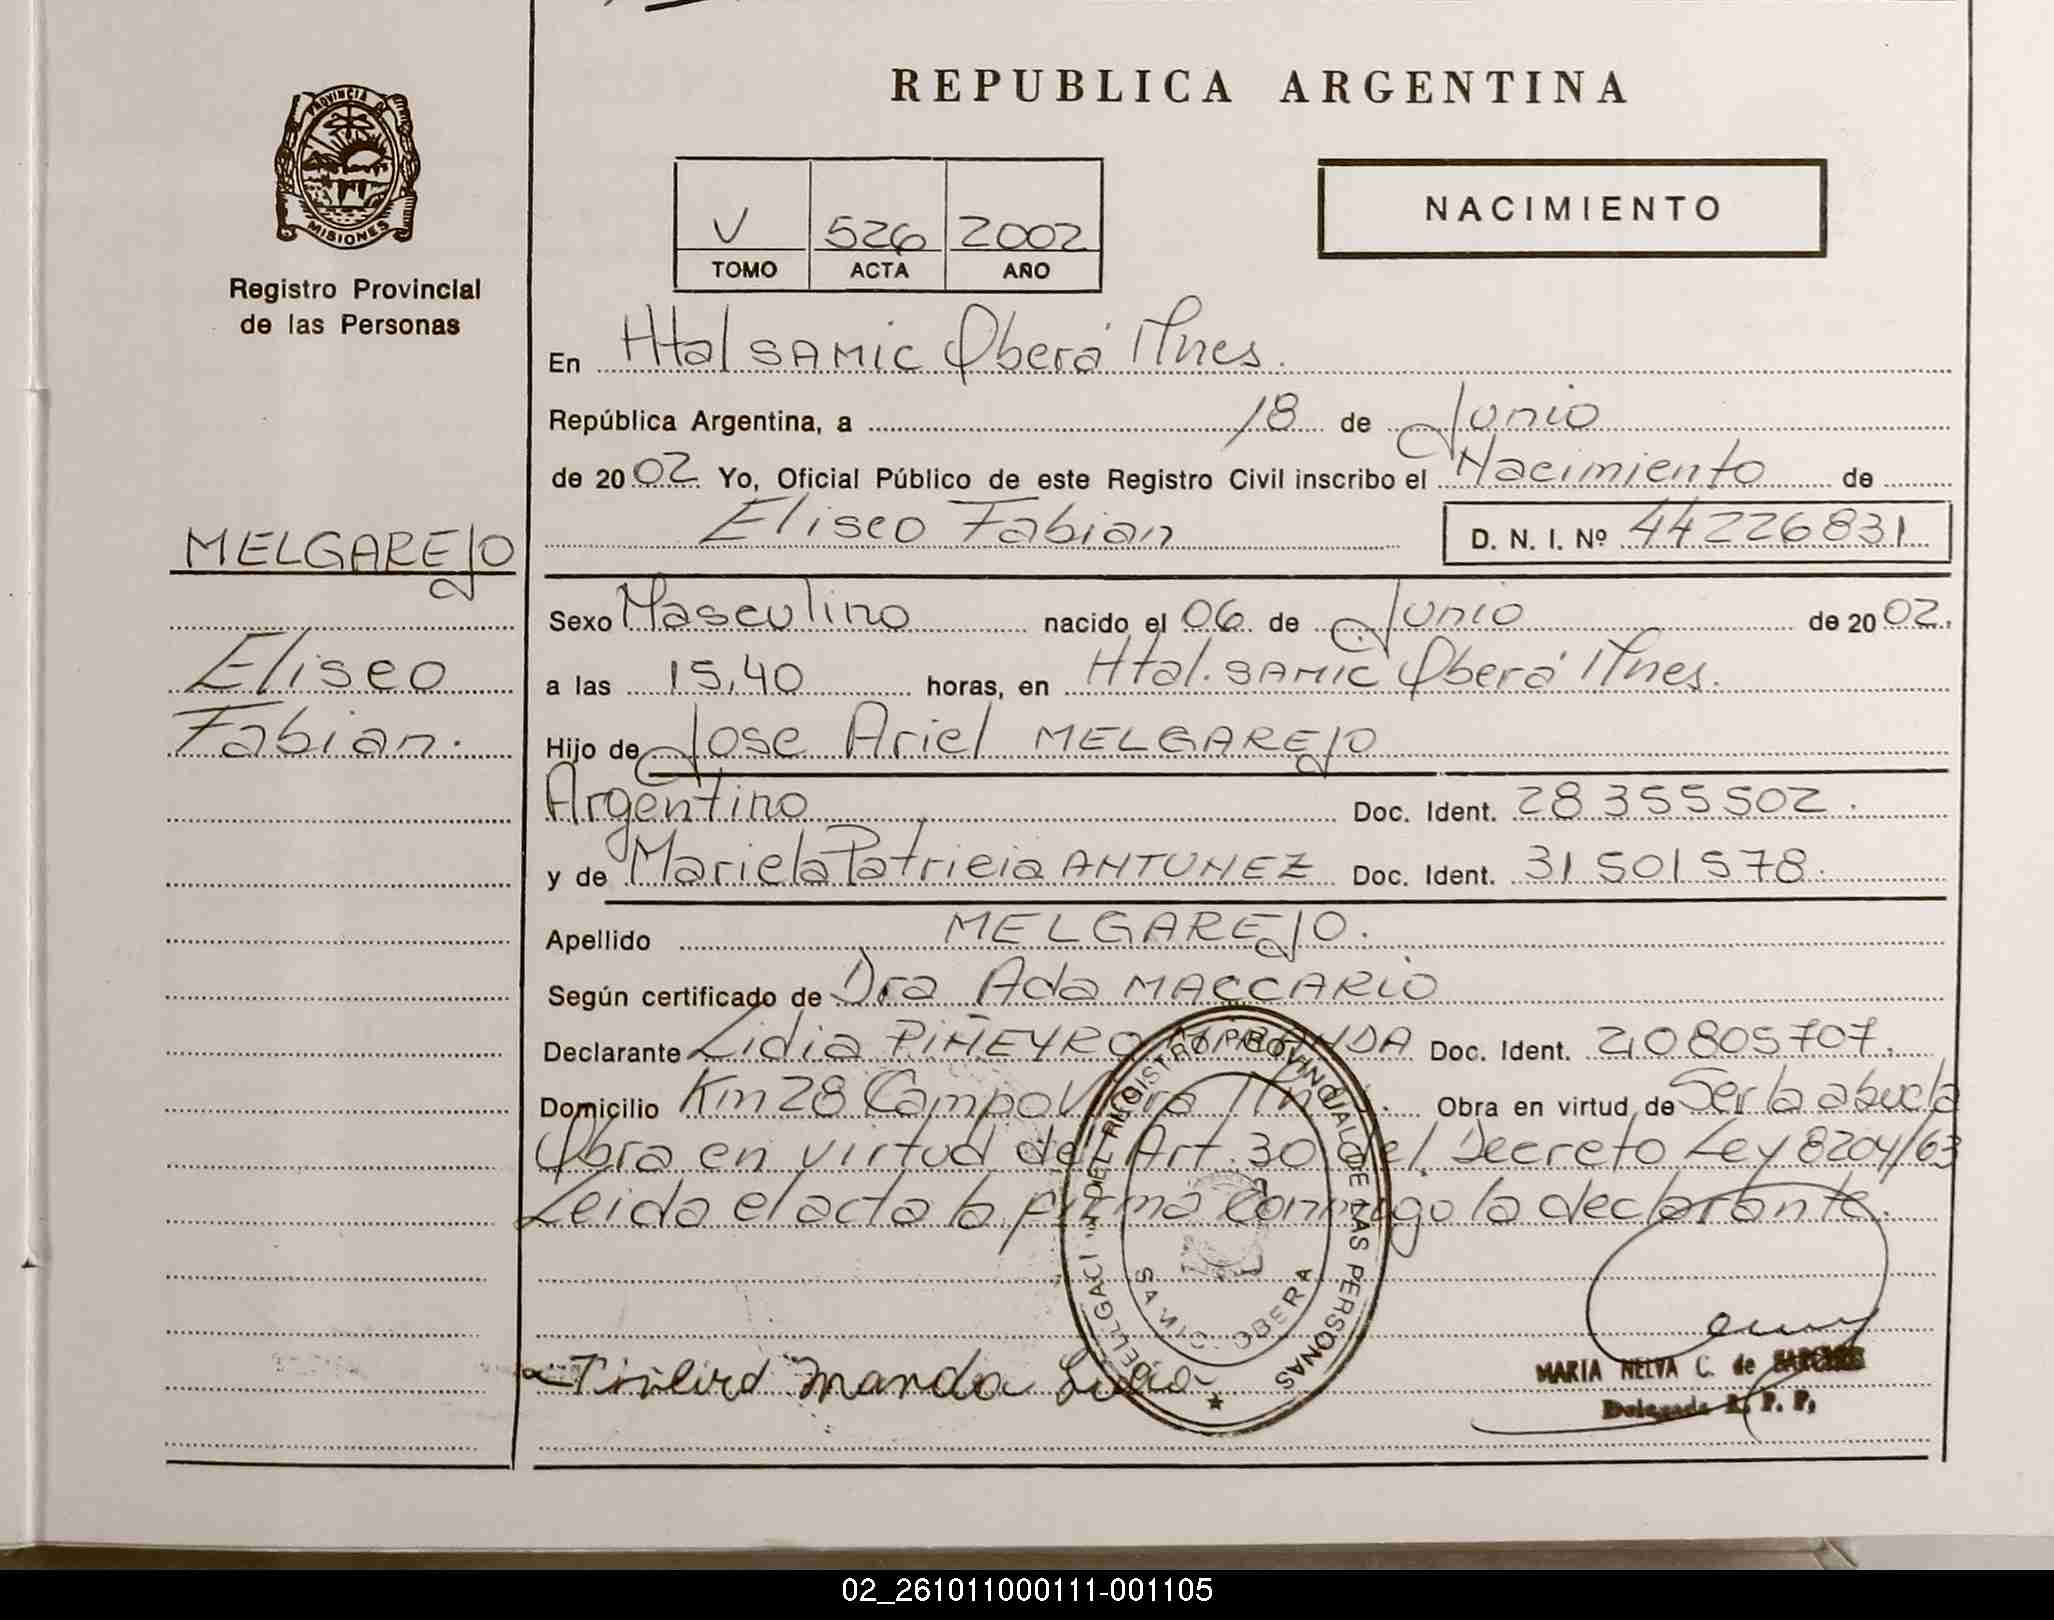 REPUBLICA ARGENTINA
PROVINCIA DE
MISIONES
Registro Provincial
de las Personas
V 526 2002
TOMO ACTA AÑO
NACIMIENTO
En Htal SAMIC Oberá Mnes.
República Argentina, a 18 de Junio
de 2002 Yo, Oficial Público de este Registro Civil inscribo el Nacimiento de
Eliseo Fabian D. N. I. Nº 44226831
MELGAREJO
Eliseo
Fabian.
Sexo Masculino nacido el 06 de Junio de 2002.
a las 15,40 horas, en Htal. SAMIC Oberá Mnes.
Hijo de Jose Ariel MELGAREJO
Argentino Doc. Ident. 28 355 502.
y de Mariela Patricia ANTUNEZ Doc. Ident. 31 501 578.
Apellido MELGAREJO.
Según certificado de Dra Ada MACCARIO
Declarante Lidia PIÑEYRO Doc. Ident. 20805707.
Domicilio Km 28 Campo Viera Mnes. Obra en virtud de Ser la abuela
Obra en virtud del Art. 30 del Decreto Ley 8204/63
Leida el acta la firma conmigo la declarante.
DEL REGISTRO PROVINCIAL DE LAS PERSONAS
SAMIC OBERA
Lidia
MARIA NELVA C. de
Delegada R. P. P.
02_261011000111-001105